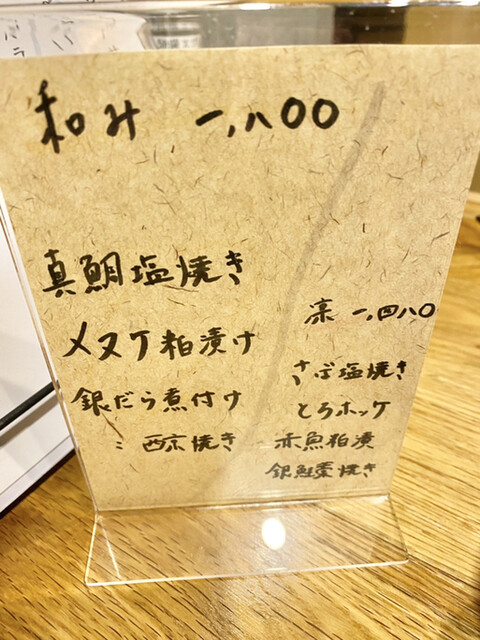 和み 一,八00
真鯛塩焼き
メヌケ粕漬け
銀だら煮付け
〃 西京焼き
凛 一,四八0
さば塩焼き
とろホッケ
赤魚粕漬
銀鮭藻焼き